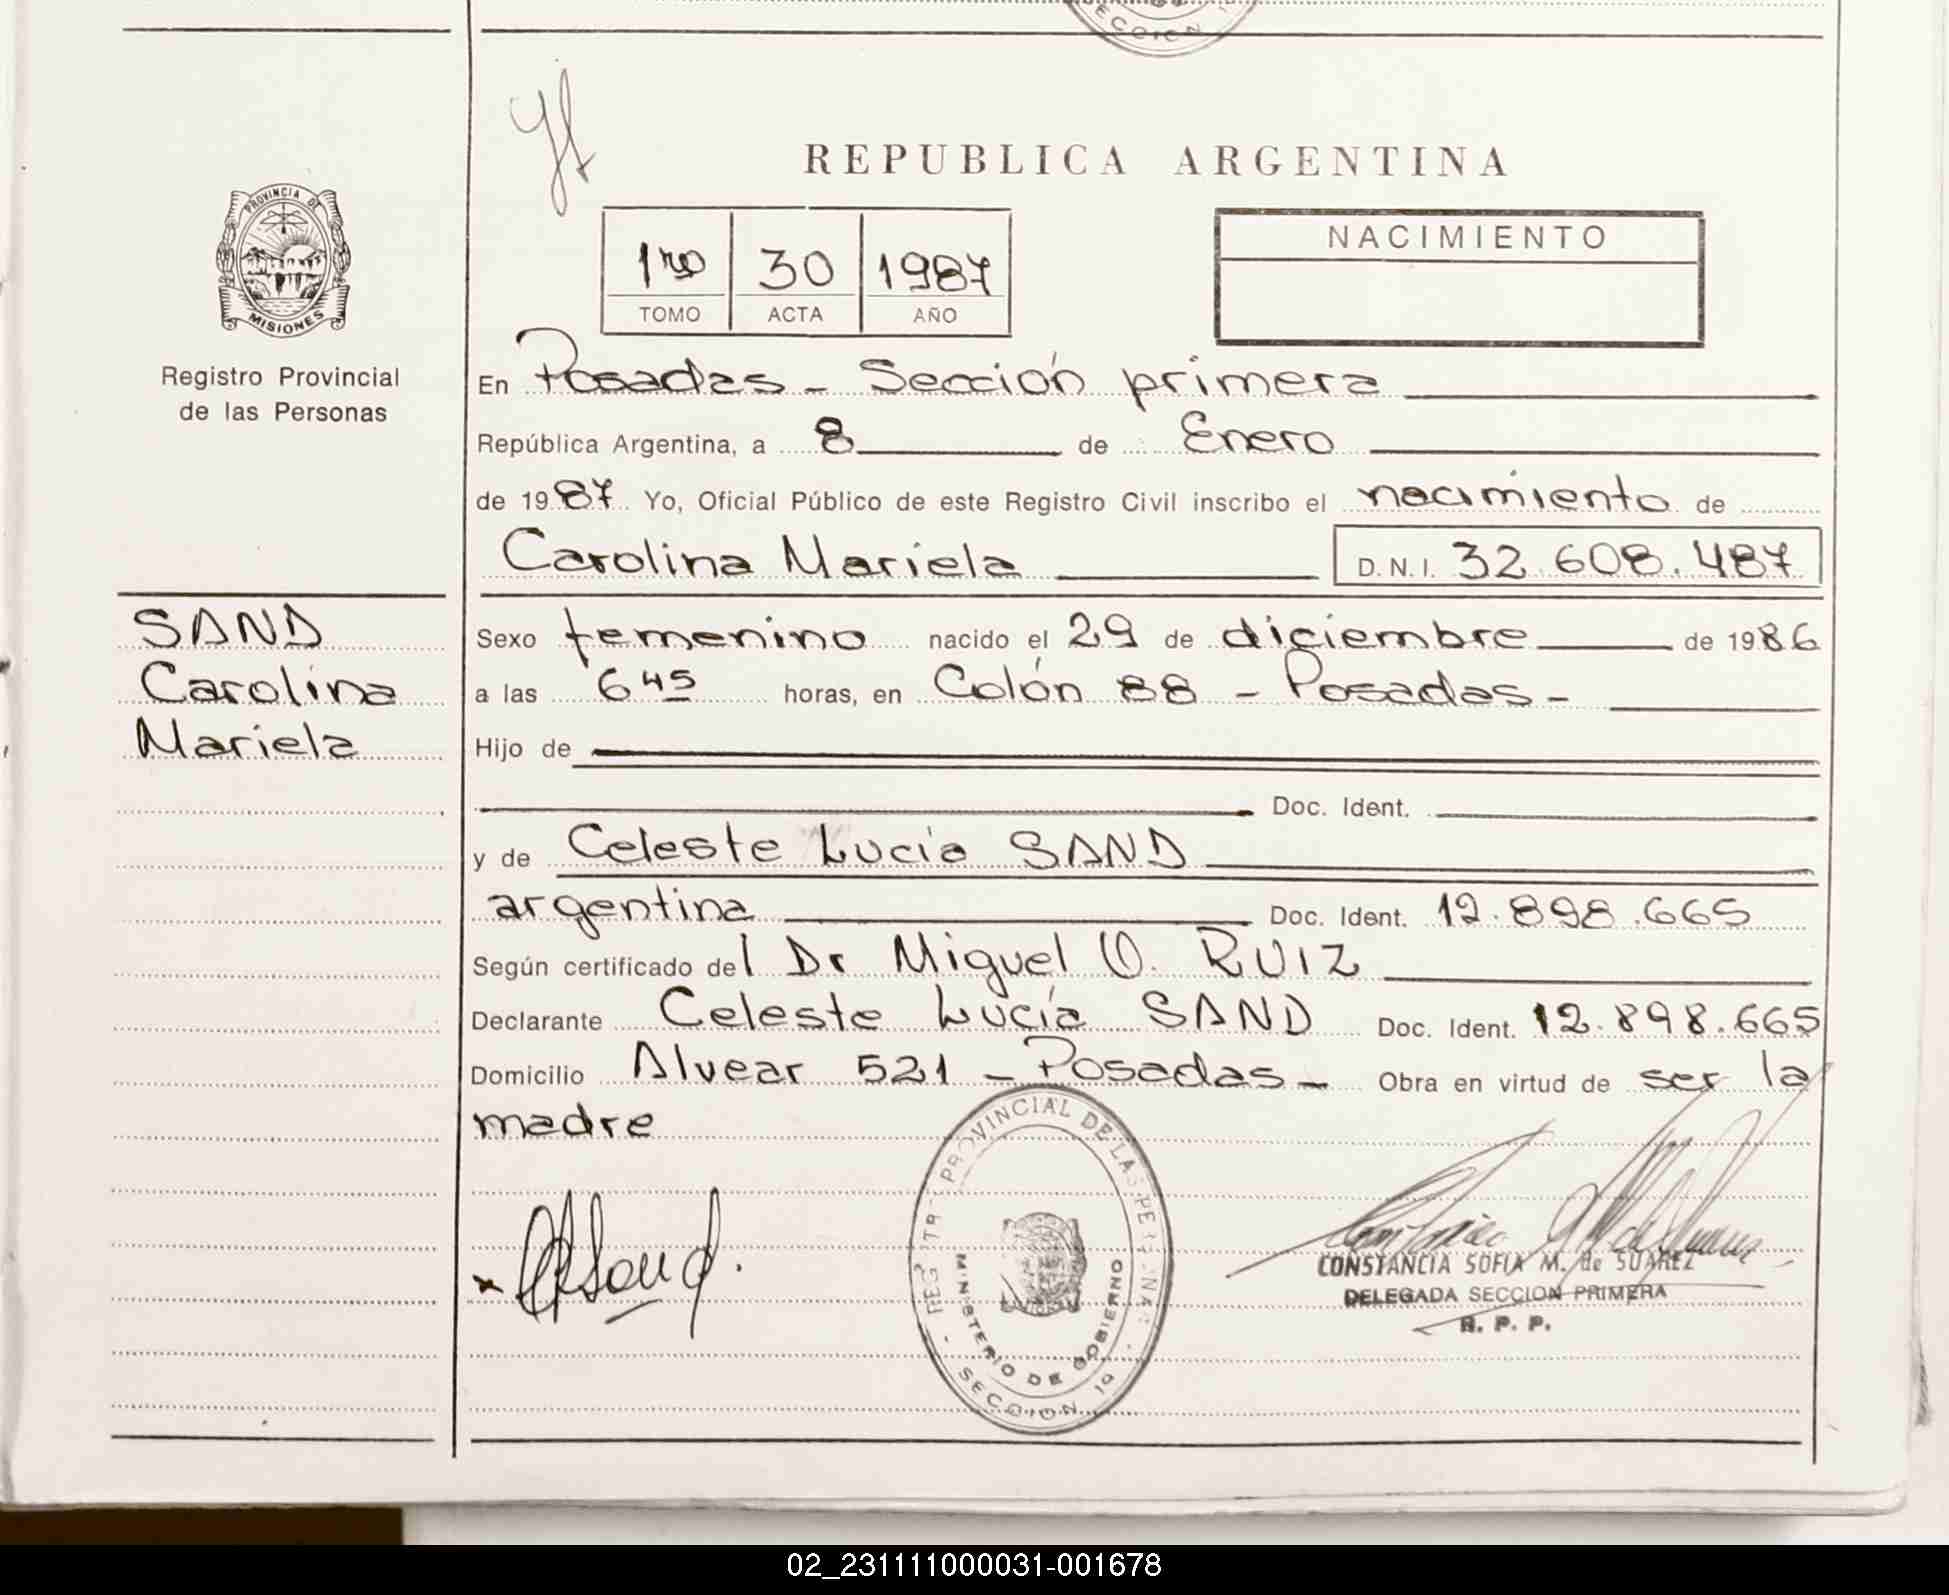 SECCION 1
REPUBLICA ARGENTINA
PROVINCIA DE
MISIONES
Registro Provincial
de las Personas
1ro 30 1987
TOMO ACTA AÑO
NACIMIENTO
En Posadas - Sección primera
República Argentina, a 8 de Enero
de 1987 Yo, Oficial Público de este Registro Civil inscribo el nacimiento de
Carolina Mariela D.N.I. 32.608.487
SAND
Carolina
Mariela
Sexo femenino nacido el 29 de diciembre de 1986
a las 6 45 horas, en Colón 88 - Posadas -
Hijo de
Doc. Ident.
y de Celeste Lucía SAND
argentina Doc. Ident. 12.898.665
Según certificado del Dr Miguel O. RUIZ
Declarante Celeste Lucía SAND Doc. Ident. 12.898.665
Domicilio Alvear 521 - Posadas - Obra en virtud de ser la
madre
REGISTRO PROVINCIAL DE LAS PERSONAS
MINISTERIO DE GOBIERNO
SECCION 1a
CONSTANCIA SOFIA M. de SUAREZ
DELEGADA SECCION PRIMERA
R. P. P.
02_231111000031-001678